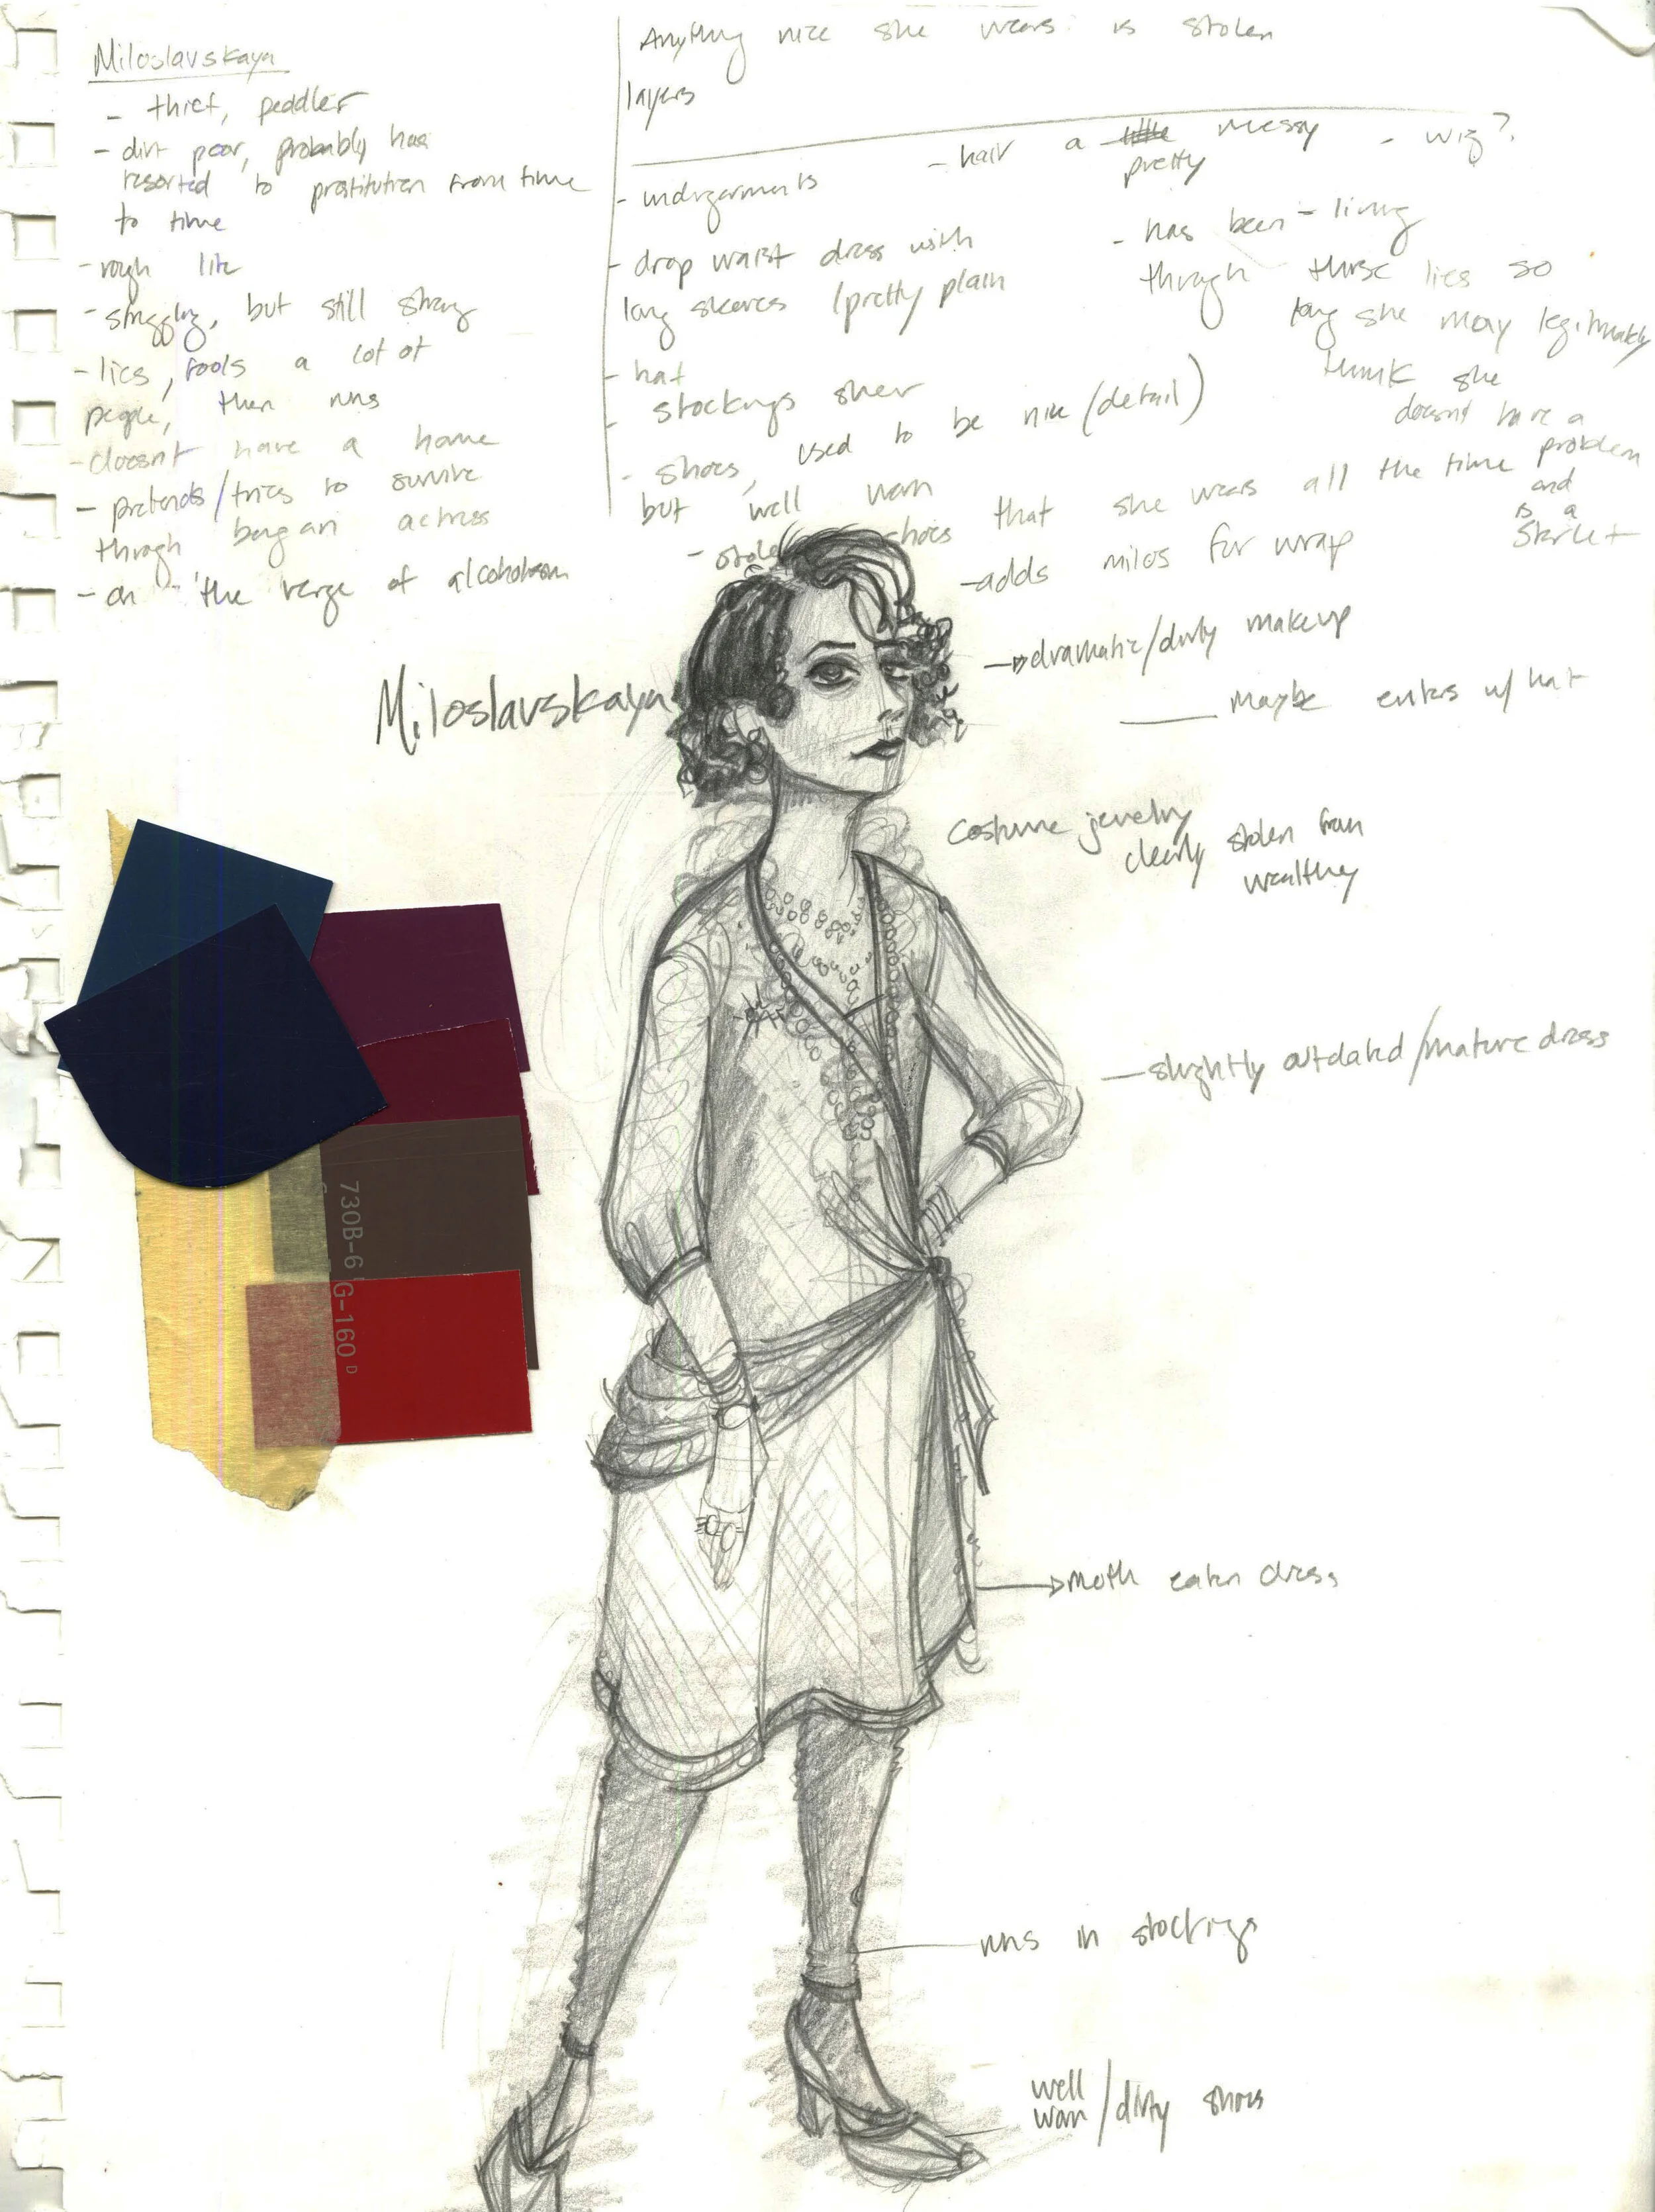 Miloslavskaya
- thief, peddler
- dirt poor, probably has
resorted to prostitution from time
to time
- rough life
- struggling, but still strong
- lies, fools a lot of
people, then runs
- doesnt have a home
- pretends/tries to survive
through being an actress
- on the verge of alcoholism
Anything nice she wears is stolen
layers
- undergarments
- drop waist dress with
long sleeves /pretty plain
- hat
- stockings sheer
- shoes, used to be nice (detail)
but well worn
- stolen shoes that she wears all the time
- hair a pretty messy - wig?
- has been living
through these lies so
long she may legitimately
think she
doesnt have a
problem
and
is a
starlet
- adds milos fur wrap
Miloslavskaya
dramatic/dirty makeup
maybe enters w/ hat
costume jewelry
clearly stolen from
wealthy
slightly outdated/mature dress
730B-6
G-160 D
moth eaten dress
runs in stockings
well
worn /dirty shoes